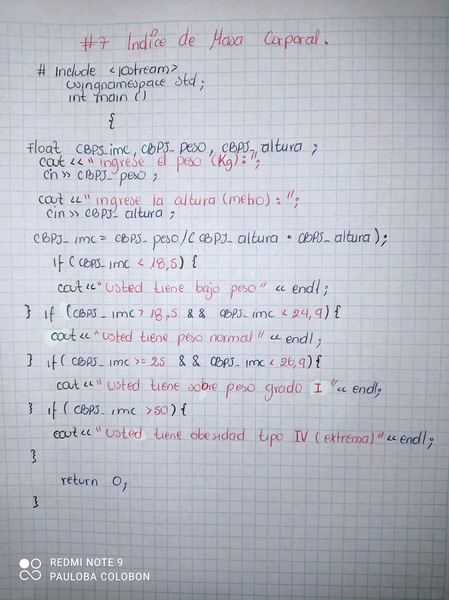 #7 Indice de Masa Corporal.
# include <iostream>
usingnamespace std;
int main ()
{
float CBPJ_imc, CBPJ_peso, CBPJ_altura ;
cout << "ingrese el peso (Kg):";
cin >> CBPJ_peso ;
cout << "ingrese la altura (metro) : ";
cin >> CBPJ_altura ;
CBPJ_imc = CBPJ_peso /( CBPJ_altura * CBPJ_altura );
if ( CBPJ_imc < 18,5) {
cout << "usted tiene bajo peso" << endl ;
} if (CBPJ_imc > 18,5 && CBPJ_imc < 24,9) {
cout << "usted tiene peso normal" << endl ;
} if ( CBPJ_imc >= 25 && CBPJ_imc < 26,9) {
cout << "usted tiene sobre peso grado I" << endl;
} if ( CBPJ_imc >50) {
cout << "usted tiene obesidad tipo IV (extrema)" << endl;
}
return 0;
}
REDMI NOTE 9
PAULOBA COLOBON